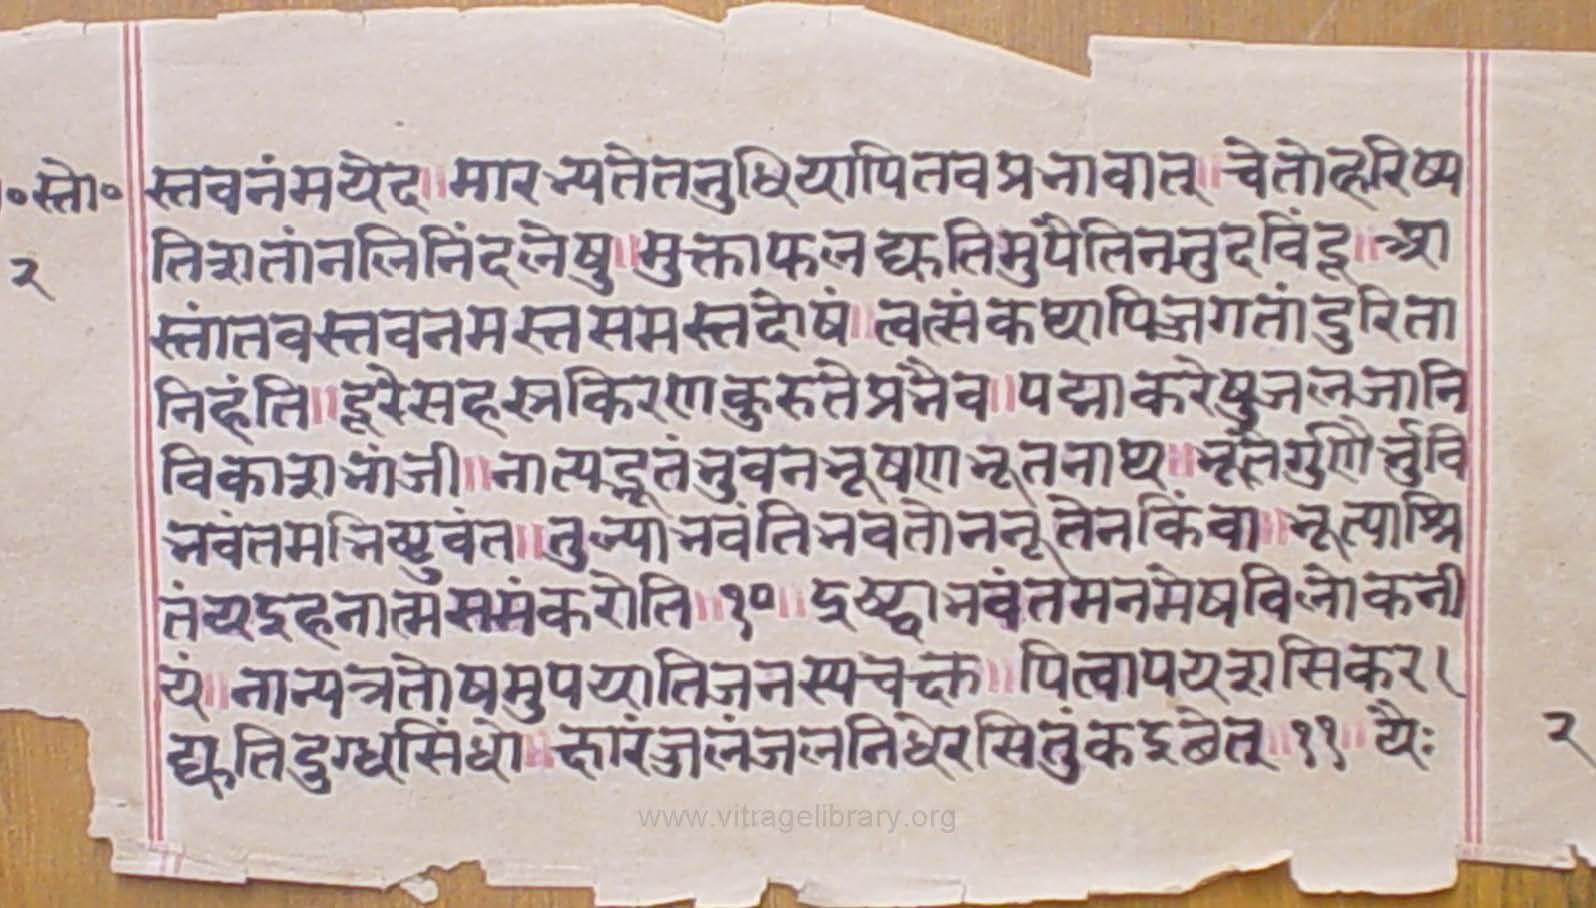 ॰स्तो॰ स्तवनंमयेद॥मारभ्यतेतनुधियापितवप्रभावात्॥चेतोहरिष्य
२ तिशतांनलिनिंदलेषु॥मुक्ताफलद्युतिमुपैतिननुदविंदू॥आ
स्तांतवस्तवनमस्तसमस्तदोषं॥त्वत्संकथापिजगतांदुरिता
निहंति॥दूरेसहस्रकिरणकुरुतेप्रभैव॥पद्माकरेषुजलजानि
विकाशभांजी॥नात्यद्भूतंभुवनभूषणभूतनाथ॥भूतैर्गुणैर्भुवि
भवंतमभिष्टुवंत॥तुल्याभवंतिभवतोननूतेनकिंवा॥भूत्याश्रि
तंयइहनात्मसमंकरोति॥१०॥दृष्ट्वाभवंतमनमेषविलोकनी
यं॥नान्यत्रतोषमुपयातिजनस्यचक्षु॥पित्वापयशसिकर।
द्युतिदुग्धसिंधो॥क्षारंजलंजलनिधेरसितुंकइछेत्॥११॥यैः २
www.vitragelibrary.org